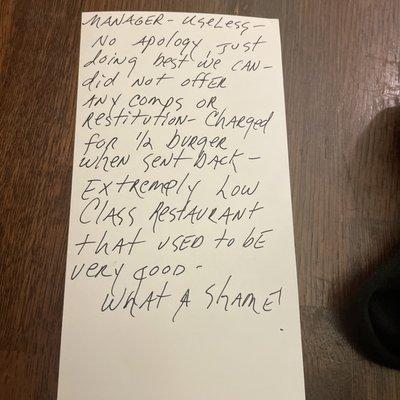 MANAGER - USELESS -
No Apology, Just
doing best we CAN -
did NOT OFFER
ANY COMPS OR
RESTITUTION - CHARGED
FOR 1/2 burger
when sent back -
EXTREMPLY LOW
CLASS RESTAURANT
that USED to BE
very good -
WHAT A SHAME!